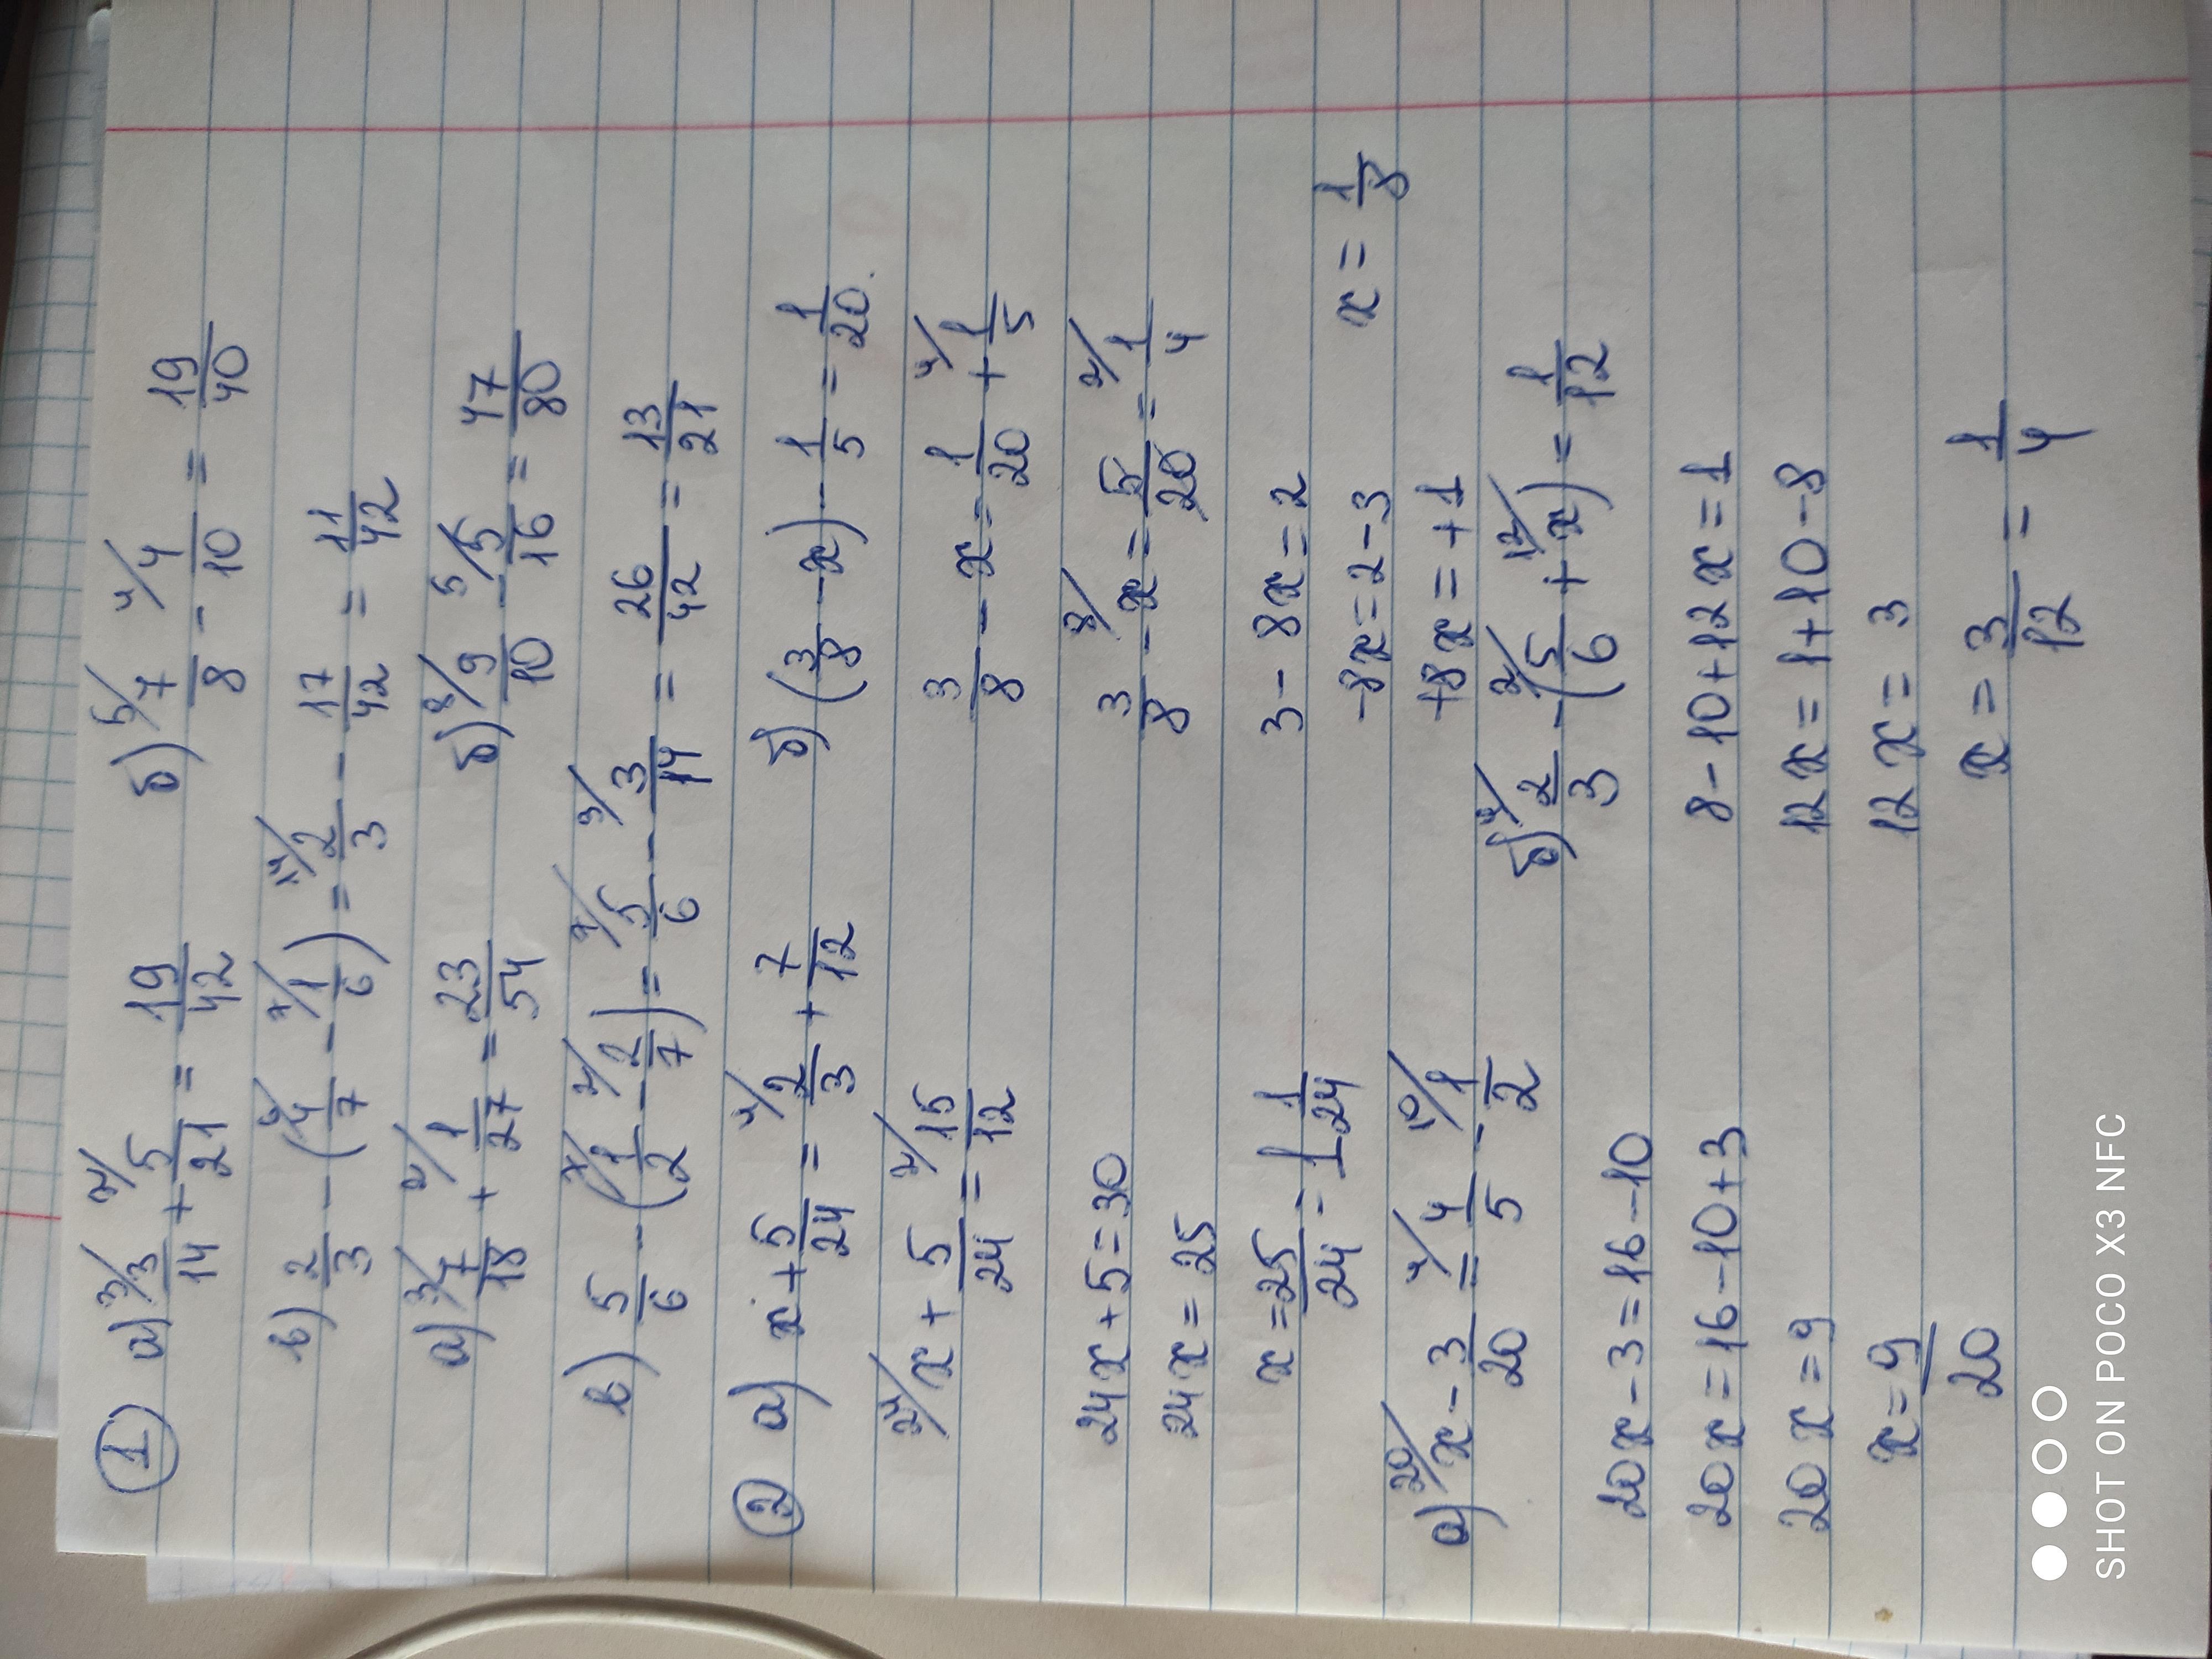 ① а) ³⁄ 3/14 + ²⁄ 5/21 = 19/42   б) ⁵⁄ 7/8 - ⁴⁄ 4/10 = 19/40
в) 2/3 - (⁶⁄ 4/7 - ⁷⁄ 1/6) = ¹⁴⁄ 2/3 - 17/42 = 11/42
а) ³⁄ 7/18 + ²⁄ 1/27 = 23/54   б) ⁸⁄ 9/10 - ⁵⁄ 5/16 = 47/80
в) 5/6 - (⁷⁄ 1/2 - ²⁄ 2/7) = ⁷⁄ 5/6 - ³⁄ 3/14 = 26/42 = 13/21
② а) x + 5/24 = ⁴⁄ 2/3 + 7/12   б) (3/8 - x) - 1/5 = 1/20.
²⁴⁄ x + 5/24 = ²⁄ 15/12   3/8 - x = 1/20 + ⁴⁄ 1/5
24x + 5 = 30   3/8 - ⁸⁄ x = 5/20 = ²⁄ 1/4
24x = 25   3 - 8x = 2
x = 25/24 - 1 1/24   -8x = 2 - 3   x = 1/8
+8x = +1
а) ²⁰⁄ x - 3/20 = ⁴⁄ 4/5 - ¹⁰⁄ 1/2   б) ⁴⁄ 2/3 - (²⁄ 5/6 + ¹²⁄ x) = 1/12
20x - 3 = 16 - 10   8 - 10 + 12x = 1
20x = 16 - 10 + 3   12x = 1 + 10 - 8
20x = 9   12x = 3
x = 9/20   x = 3/12 = 1/4
SHOT ON POCO X3 NFC